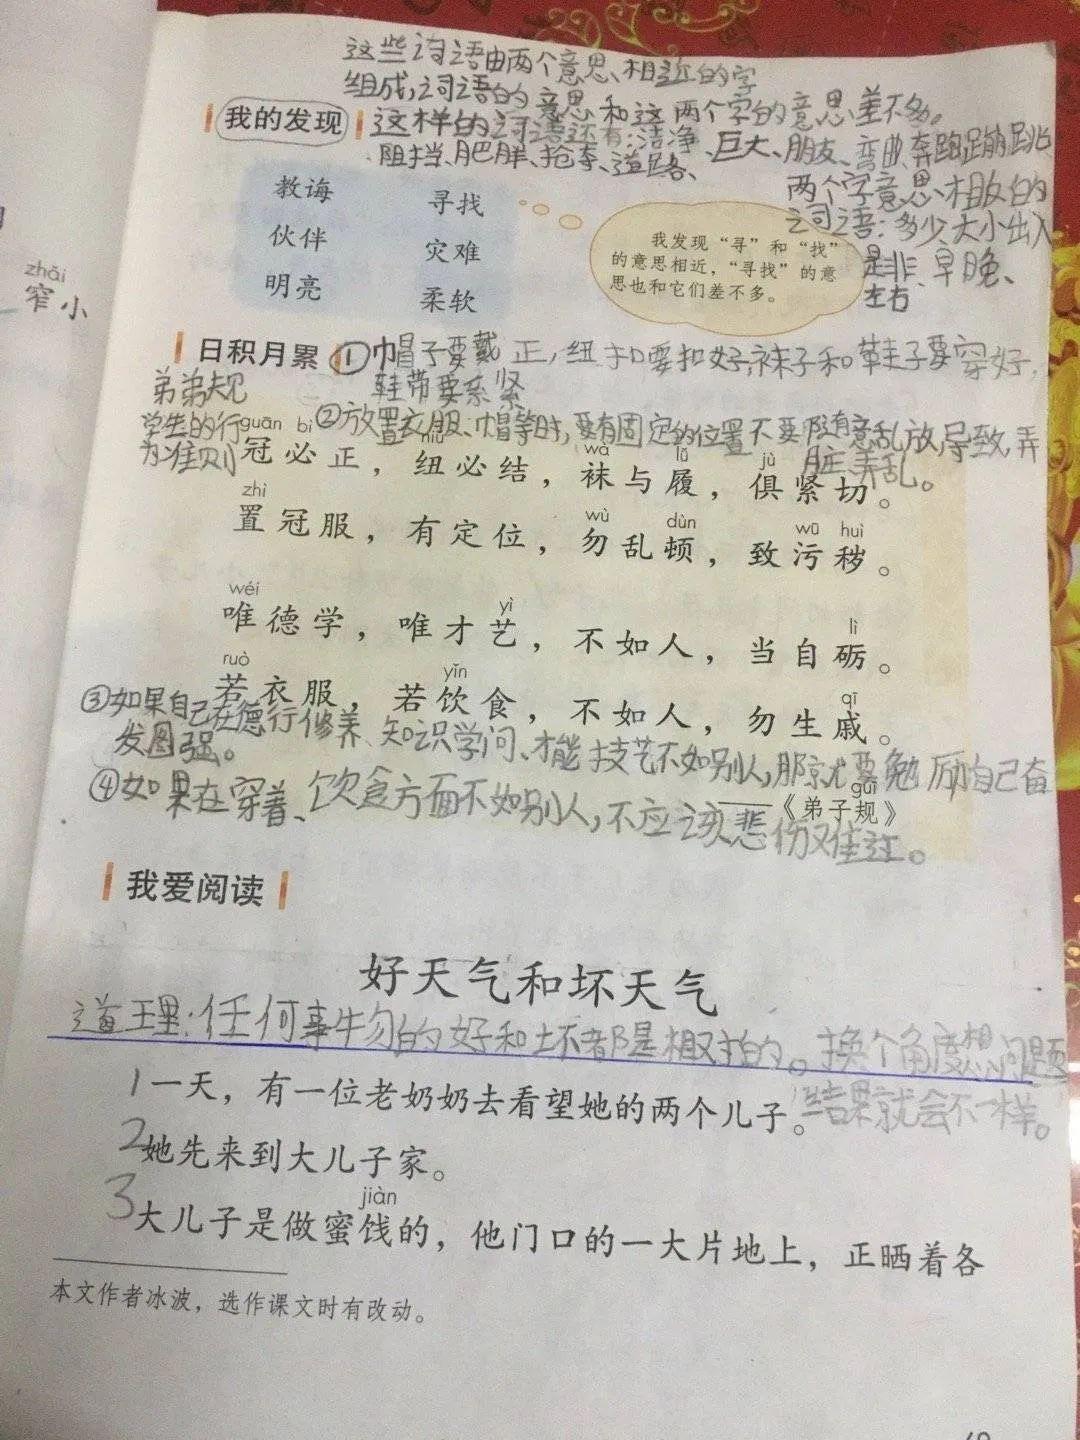 这些词语由两个意思相近的字
组成,词语的意思和这两个字的意思差不多。
我的发现
这样的词语还有:洁净、巨大、朋友、弯曲、奔跑、蹦跳
阻挡、肥胖、抢夺、道路、
两个字意思相反的
词语:多少、大小、出入
是非、早晚、
左右
教诲 寻找
伙伴 灾难
明亮 柔软
我发现“寻”和“找”
的意思相近，“寻找”的意
思也和它们差不多。
zhǎi
窄小
日积月累
①帽子要戴正,纽扣要扣好,袜子和鞋子要穿好,
鞋带要系紧
弟弟规
学生的行
为准则
②放置衣服、帽等时,要有固定的位置不要随意乱放,导致,弄
脏弄乱。
guān bì niǔ wà lǚ jù
冠必正，纽必结，袜与履，俱紧切。
zhì wù dùn wū huì
置冠服，有定位，勿乱顿，致污秽。
wéi yì lì
唯德学，唯才艺，不如人，当自砺。
ruò yǐn qī
若衣服，若饮食，不如人，勿生戚。
③如果自己在德行修养、知识学问、才能技艺不如别人,那就要勉厉自己奋
发图强。
guī
——《弟子规》
④如果在穿着、饮食方面不如别人,不应该悲伤难过。
我爱阅读
好天气和坏天气
道理:任何事物的好和坏都是相对的。换个角度想问题
结果就会不一样。
1一天，有一位老奶奶去看望她的两个儿子。
2她先来到大儿子家。
jiàn
3大儿子是做蜜饯的，他门口的一大片地上，正晒着各
本文作者冰波，选作课文时有改动。